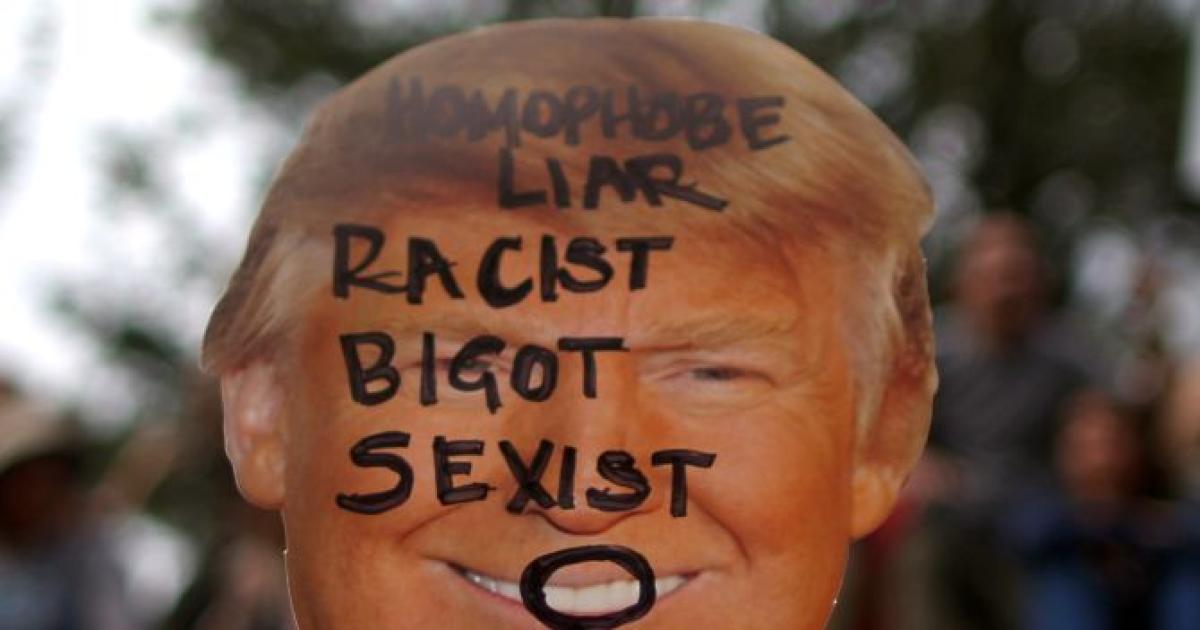 HOMOPHOBE
LIAR
RACIST
BIGOT
SEXIST